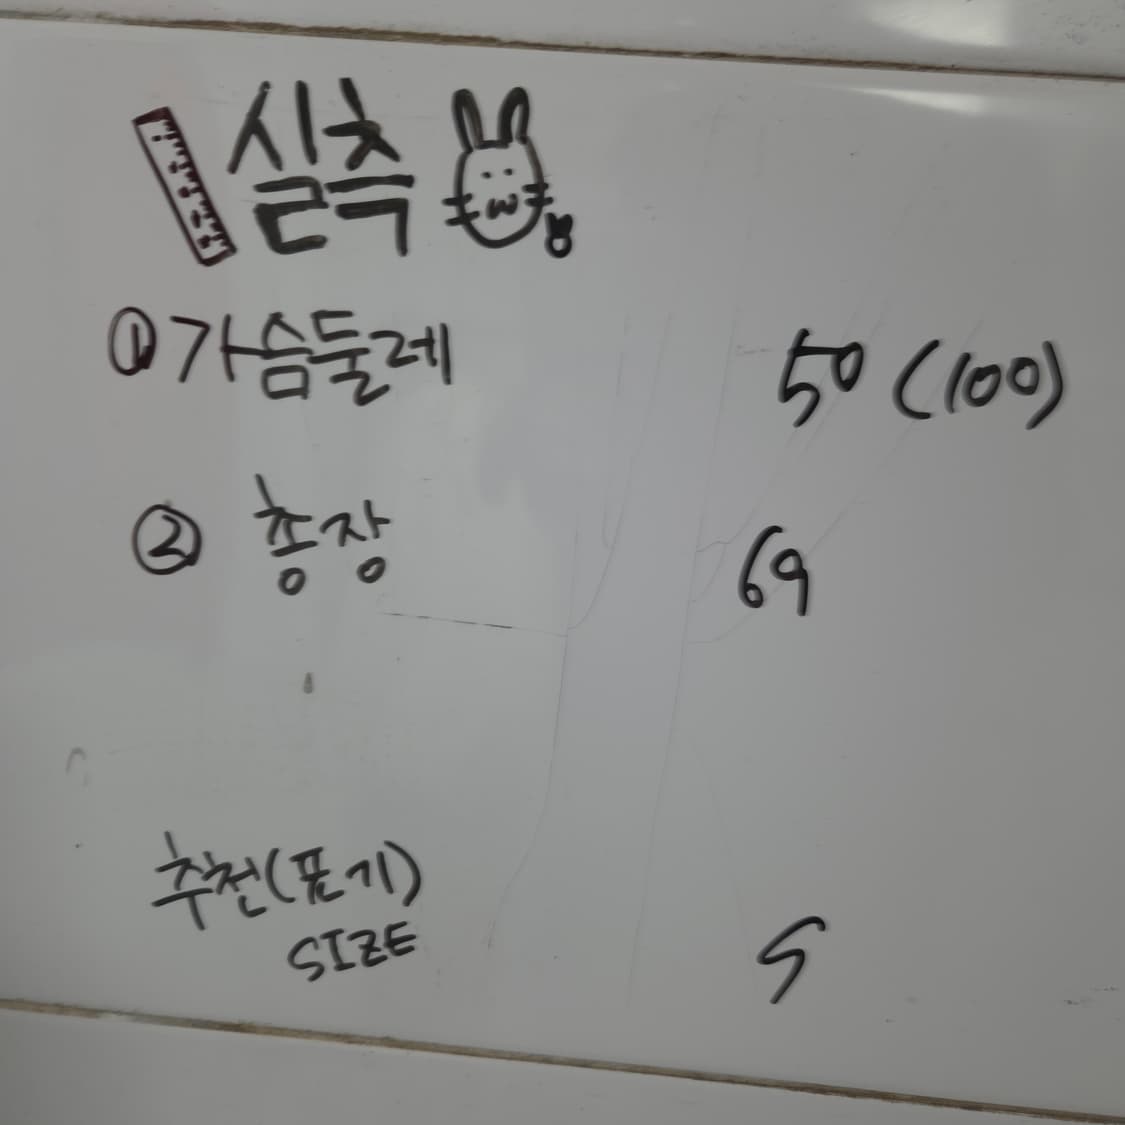 실측
① 가슴둘레 50 (100)
② 총장 69
추천(표기)
SIZE S